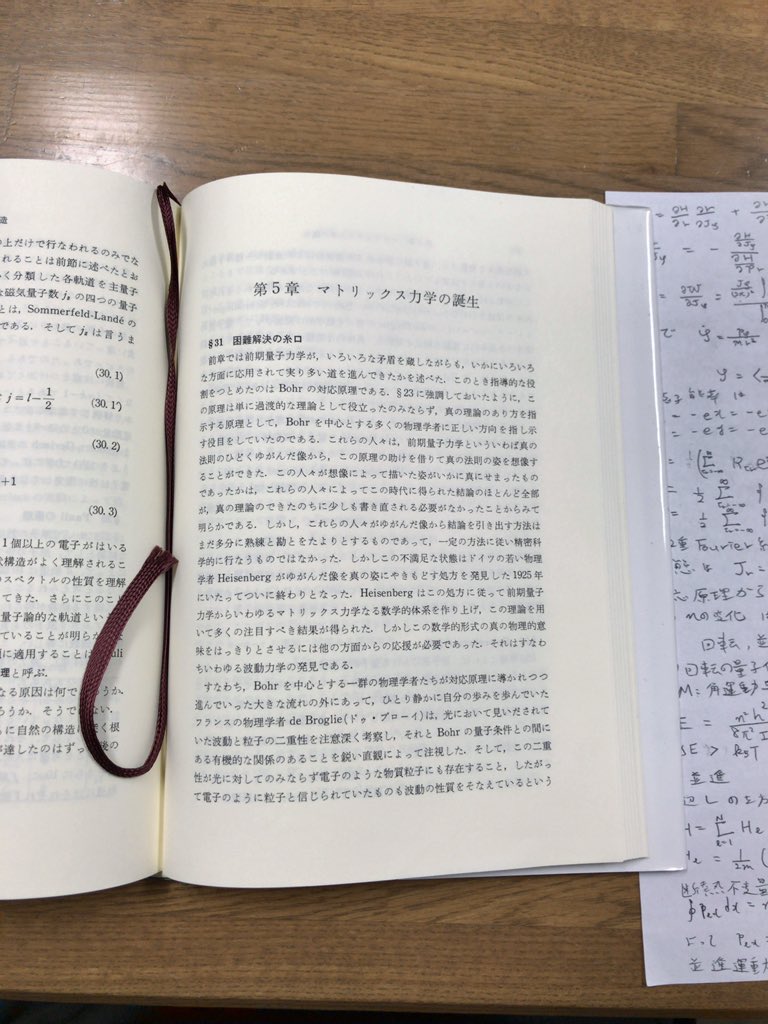 造
の上だけで行なわれるのみでな
れることは前節に述べたとお
く分類した各軌道を主量子
な磁気量子数 j₂ の四つの量子
とは，Sommerfeld-Landé の
である．そして j₂ は言うま
(30.1)
j=l-1/2 (30.1')
(30.2)
+1
(30.3)
1個以上の電子がはいる
構造がよく理解されるこ
のスペクトルの性質を理解
てきた．さらにこのこ
量子論的な軌道とい
ていることが明らか
に適用することは
理と呼ぶ．
なる原因は何で
ろうか．そう
に自然の構造に 根
達したのはずっと後の
第5章 マトリックス力学の誕生
§31 困難解決の糸口
前章では前期量子力学が，いろいろな矛盾を蔵しながらも，いかにいろいろ
な方面に応用されて実り多い道を進んできたかを述べた．このとき指導的な役
割をつとめたのは Bohr の対応原理である．§23に強調しておいたように，こ
の原理は単に過渡的な理論として役立ったのみならず，真の理論のあり方を指
示する原理として，Bohr を中心とする多くの物理学者に正しい方向を指し示
す役目をしていたのである．これらの人々は，前期量子力学といういわば真の
法則のひどくゆがんだ像から，この原理の助けを借りて真の法則の姿を想像す
ることができた．この人々が想像によって描いた姿がいかに真にせまったもの
であったかは，これらの人々によってこの時代に得られた結論のほとんど全部
が，真の理論のできたのちに少しも書き直される必要がなかったことからみて
明らかである．しかし，これらの人々がゆがんだ像から結論を引き出す方法は
まだ多分に熟練と勘とをたよりとするものであって，一定の方法に従い精密科
学的に行なうものではなかった．しかしこの不満足な状態はドイツの若い物理
学者 Heisenberg がゆがんだ像を真の姿にやきもどす処方を発見した1925年
にいたってついに終わりとなった．Heisenberg はこの処方に従って前期量子
力学からいわゆるマトリックス力学なる数学的体系を作り上げ，この理論を用
いて多くの注目すべき結果が得られた．しかしこの数学的形式の真の物理的意
味をはっきりとさせるには他の方面からの応援が必要であった．それはすなわ
ちいわゆる波動力学の発見である．
すなわち，Bohr を中心とする一群の物理学者たちが対応原理に導かれつつ
進んでいった大きな流れの外にあって，ひとり静かに自分の歩みを歩んでいた
フランスの物理学者 de Broglie(ドゥ・ブローイ)は，光において見いだされて
いた波動と粒子の二重性を注意深く考察し，それと Bohr の量子条件との間に
ある有機的な関係のあることを鋭い直観によって注視した．そして，この二重
性が光に対してのみならず電子のような物質粒子にも存在すること，したがっ
て電子のように粒子と信じられていたものも波動の性質をそなえているという
2重Fourier級
応原理から
回転，並
回転の量子
M：角運動
並進
断熱不変量
よって
並進運動